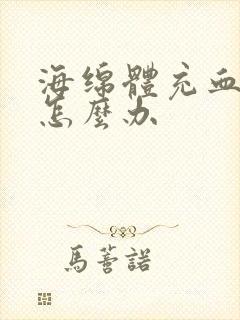 海绵體充血
怎麼办
馬蕓諾